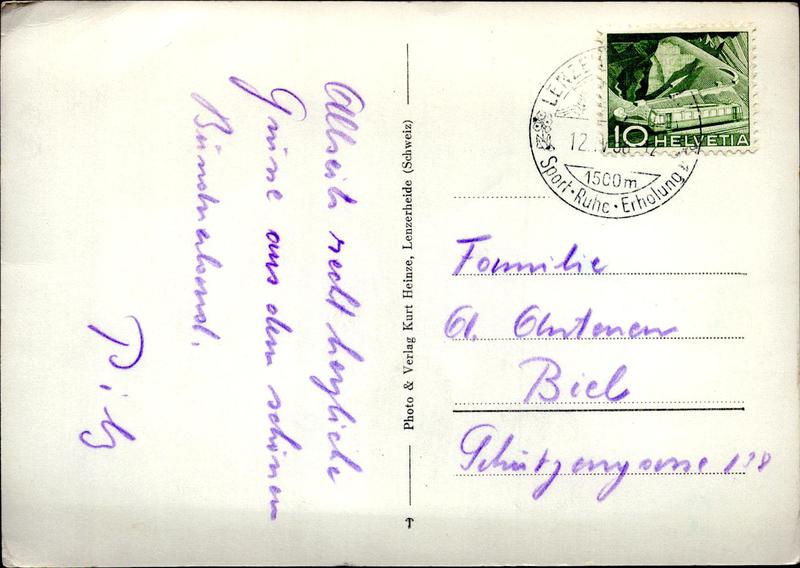 Allseits recht herzliche
Grüsse aus dem schönen
Bündnerland.
Photo & Verlag Kurt Heinze, Lenzerheide (Schweiz)
LENZE
12.
1500m
Sport · Ruhe · Erholung
10 HELVETIA
Familie
A. Antenen
Biel
Schützengasse 128